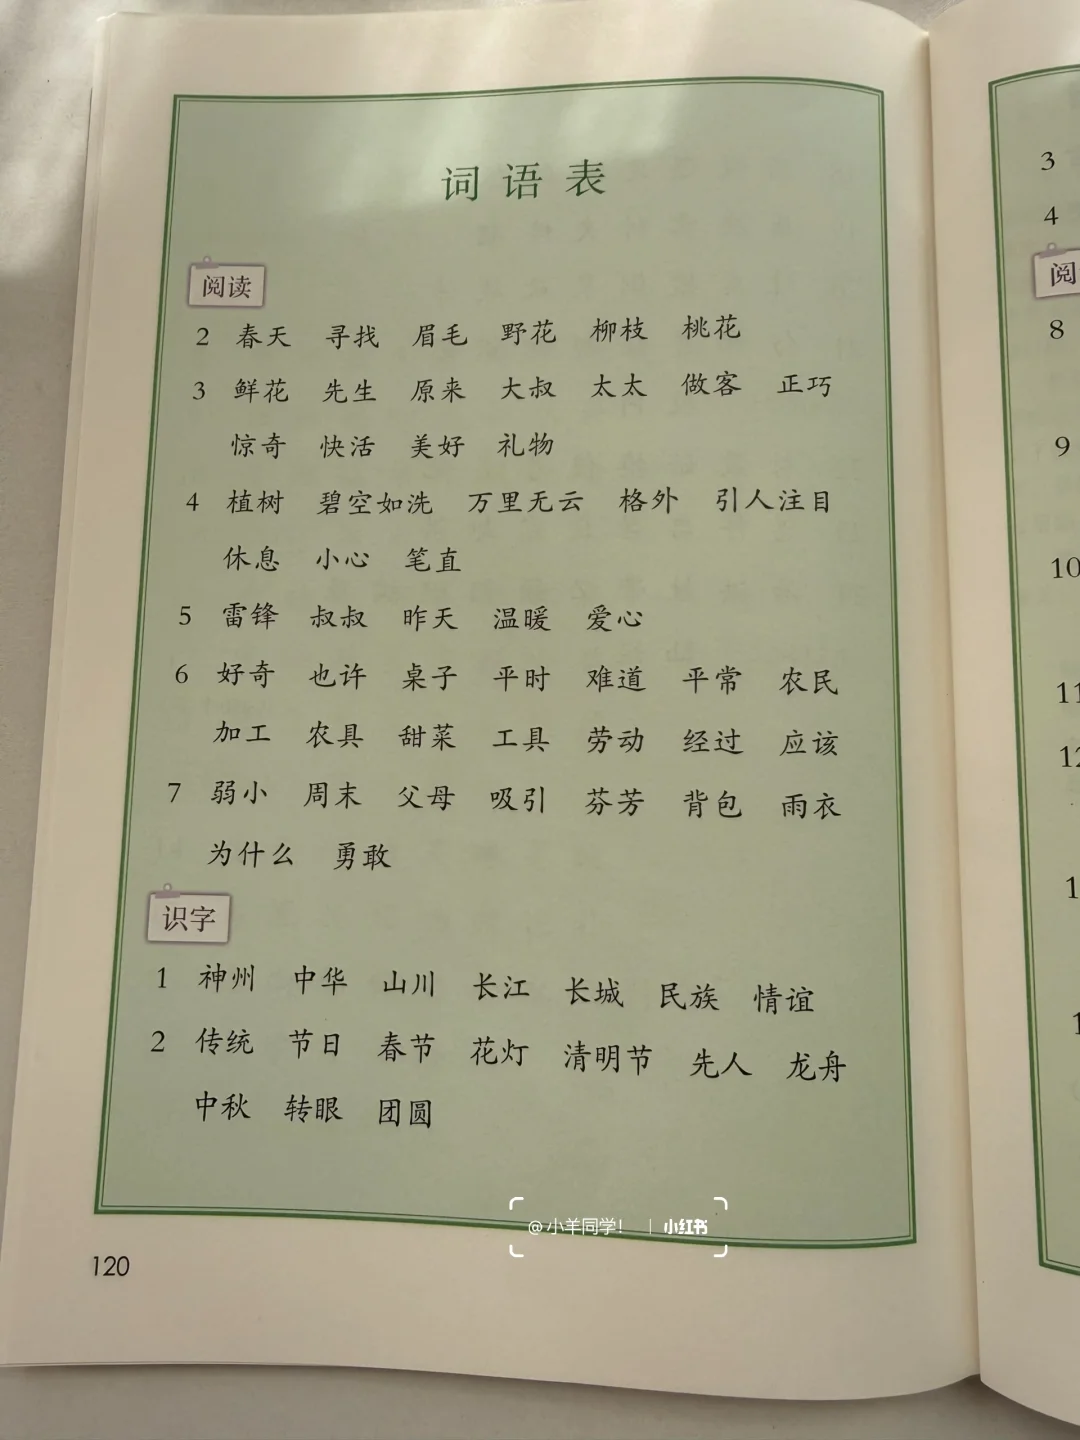 词语表
阅读
2 春天 寻找 眉毛 野花 柳枝 桃花
3 鲜花 先生 原来 大叔 太太 做客 正巧
惊奇 快活 美好 礼物
4 植树 碧空如洗 万里无云 格外 引人注目
休息 小心 笔直
5 雷锋 叔叔 昨天 温暖 爱心
6 好奇 也许 桌子 平时 难道 平常 农民
加工 农具 甜菜 工具 劳动 经过 应该
7 弱小 周末 父母 吸引 芬芳 背包 雨衣
为什么 勇敢
识字
1 神州 中华 山川 长江 长城 民族 情谊
2 传统 节日 春节 花灯 清明节 先人 龙舟
中秋 转眼 团圆
@小羊同学! | 小红书
120
3
4
阅
8
9
10
11
12